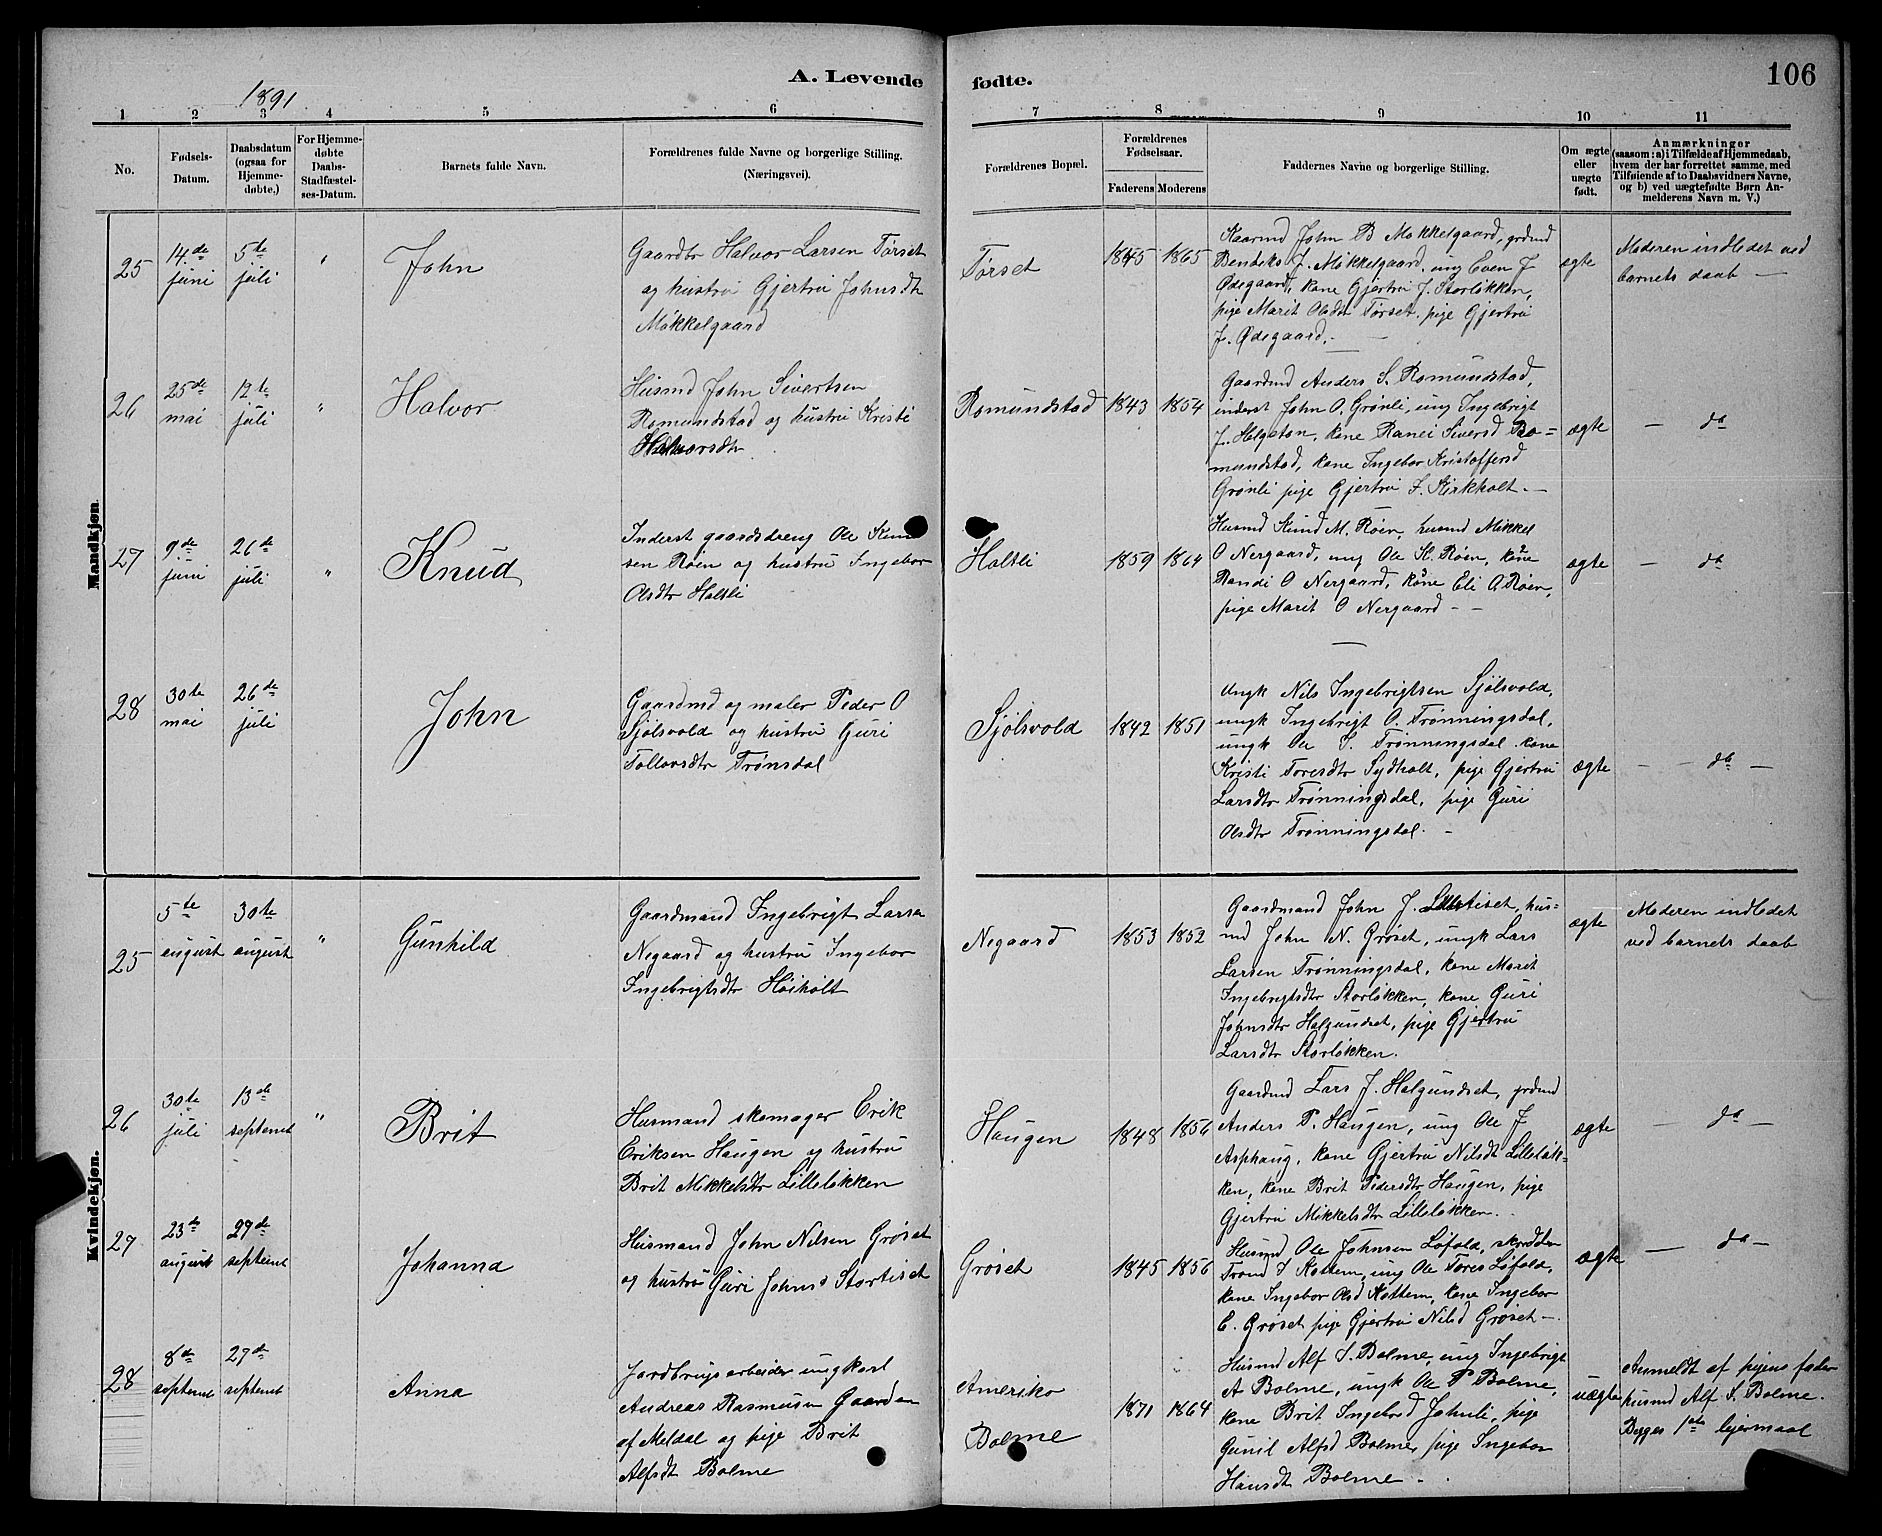 A. Levende fødte.
106
1891
1 2 3 4 5 6 7 8 9 10 11
No.
Fødsels-
Datum.
Daabsdatum
(ogsaa for
Hjemme-
døbte.)
For Hjemme-
døbte
Daabs-
Stadfæstel-
ses-Datum.
Barnets fulde Navn.
Forældrenes fulde Navne og borgerlige Stilling.
(Næringsvei).
Forældrenes Bopæl.
Forældrenes
Fødselsaar.
Faderens Moderens
Faddernes Navne og borgerlige Stilling.
Om ægte
eller
uægte
født.
Anmærkninger
(saasom: a) i Tilfælde af Hjemmedaab,
hvem der har forrettet samme, med
Tilføiende af to Daabsvidners Navne,
og b) ved uægtefødte Børn An-
melderens Navn m. V.)
Mandkjøn.
25
14de
juni
5te
juli
"
John
Gaardbr Halvor Larsen Tørset
og hustru Gjertru Johnsdtr
Mökkelgaard
Tørset
1845 1865
Kaarmd John B Mökkelgaard, grdmd
Bendiks J. Mökkelgaard, ung Even J
Ødegaard, kone Gjertru J. Storløkken,
pige Marit Olsdtr Tørset, pige Gjertru
J. Ødegaard. —
ægte
Moderen indledet ved
barnets daab —
26
25de
mai
12te
juli
"
Halvor
Husmd John Sivertsen
Romundstad og hustru Kristi
Halvorsdtr
Romundstad
1843 1854
Gaardmd Anders S. Romundstad,
inderst John O. Grønli, ung Ingebrigt
J. Helgeton, kone Ranei Siversd Ro=
mundstad, kone Ingebor Kristoffersd
Grønli pige Gjertru S. Kirkholt. —
ægte
— do
27
9de
juni
26de
juli
"
Knud
Inderst gaardsdreng Ole Knud
sen Røen og hustru Ingebor
Olsdtr Holtli
Holtli
1859 1864
Husmd Knud M. Røen, husmd Mikkel
O Nergaard, ung Ole K. Røen, kone
Randi O Nergaard, kone Eli O. Røen,
pige Marit O Nergaard - -
ægte
— do
28
30te
mai
26de
juli
John
Gaardmd og maler Peder O
Sjølsvold og hustru Guri
Tollovsdtr Trønsdal
Sjølsvold
1842 1851
Ungk Nils Ingebrigtsen Sjølsvold,
ungk Ingebrigt O. Trønningsdal,
ungk Ole S. Trønningsdal, kone
Kristi Toresdtr Sydholt, pige Gjertru
Larsdtr Trønningsdal, pige Guri
Olsdtr Trønningsdal. -
ægte
— do —
Kvindekjøn.
25
5te
august
30te
august
"
Gunhild
Gaardmand Ingebrigt Larsen
Negaard og hustru Ingebor
Ingebrigtsdtr Høiholt
Negaard
1853 1852
Gaardmand John J. Settertiset, hus=
md John N. Grøset, ungk Lars
Larsen Trønningsdal, kone Marit
Ingebrigtsdtr Storløkken, kone Guri
Johnsdtr Halgundset, pige Gjertru
Larsdtr Storløkken.
ægte
Moderen indledet
ved barnets daab
26
30te
juli
13de
septembr
"
Brit
Husmand skomager Erik
Eriksen Haugen og hustru
Brit Mikkelsdtr Lilleløkken
Haugen
1848 1856
Gaardmd Lars J. Halgundset, grdmd
Anders P. Haugen, ung Ole J
Asphaug, kone Gjertru Nilsdt Lilleløk=
ken, kone Brit Pedersdtr Haugen, pige
Gjertru Mikkelsdtr Lilleløkken. -
ægte
— do —
27
23de
august
27de
septembr
Johanna
Husmand John Nilsen Grøset
og hustru Guri Johnsd Stortiset
Grøset
1845 1856
Husmd Ole Johnsen Løfald, skrædder
Trond J Kottem, ung Ole Tores Løfald,
kone Ingebor Olsd Kottem, kone Ingebor
E. Grøset pige Gjertru Nilsd Grøset —
ægte
— do —
28
8de
septembr
27de
septembr
Anna
Jordbrugsarbeider ungkarl
Andreas Rasmusen Gaarden
af Meldal og pige Brit
Alfsdt Bolme
Amerika
Bolme
1871 1864
Husmd Alf S. Bolme, ung Ingebrigt
A Bolme, ungk Ole P Bolme,
kone Brit Ingebrsd Jøhnli, pige
Gunil Alfsd Bolme, pige Ingebor
Hansdt Bolme - .
uægte
Anmeldt af pigens fader
husmd Alf S. Bolme.
Begges 1ste lejermaal